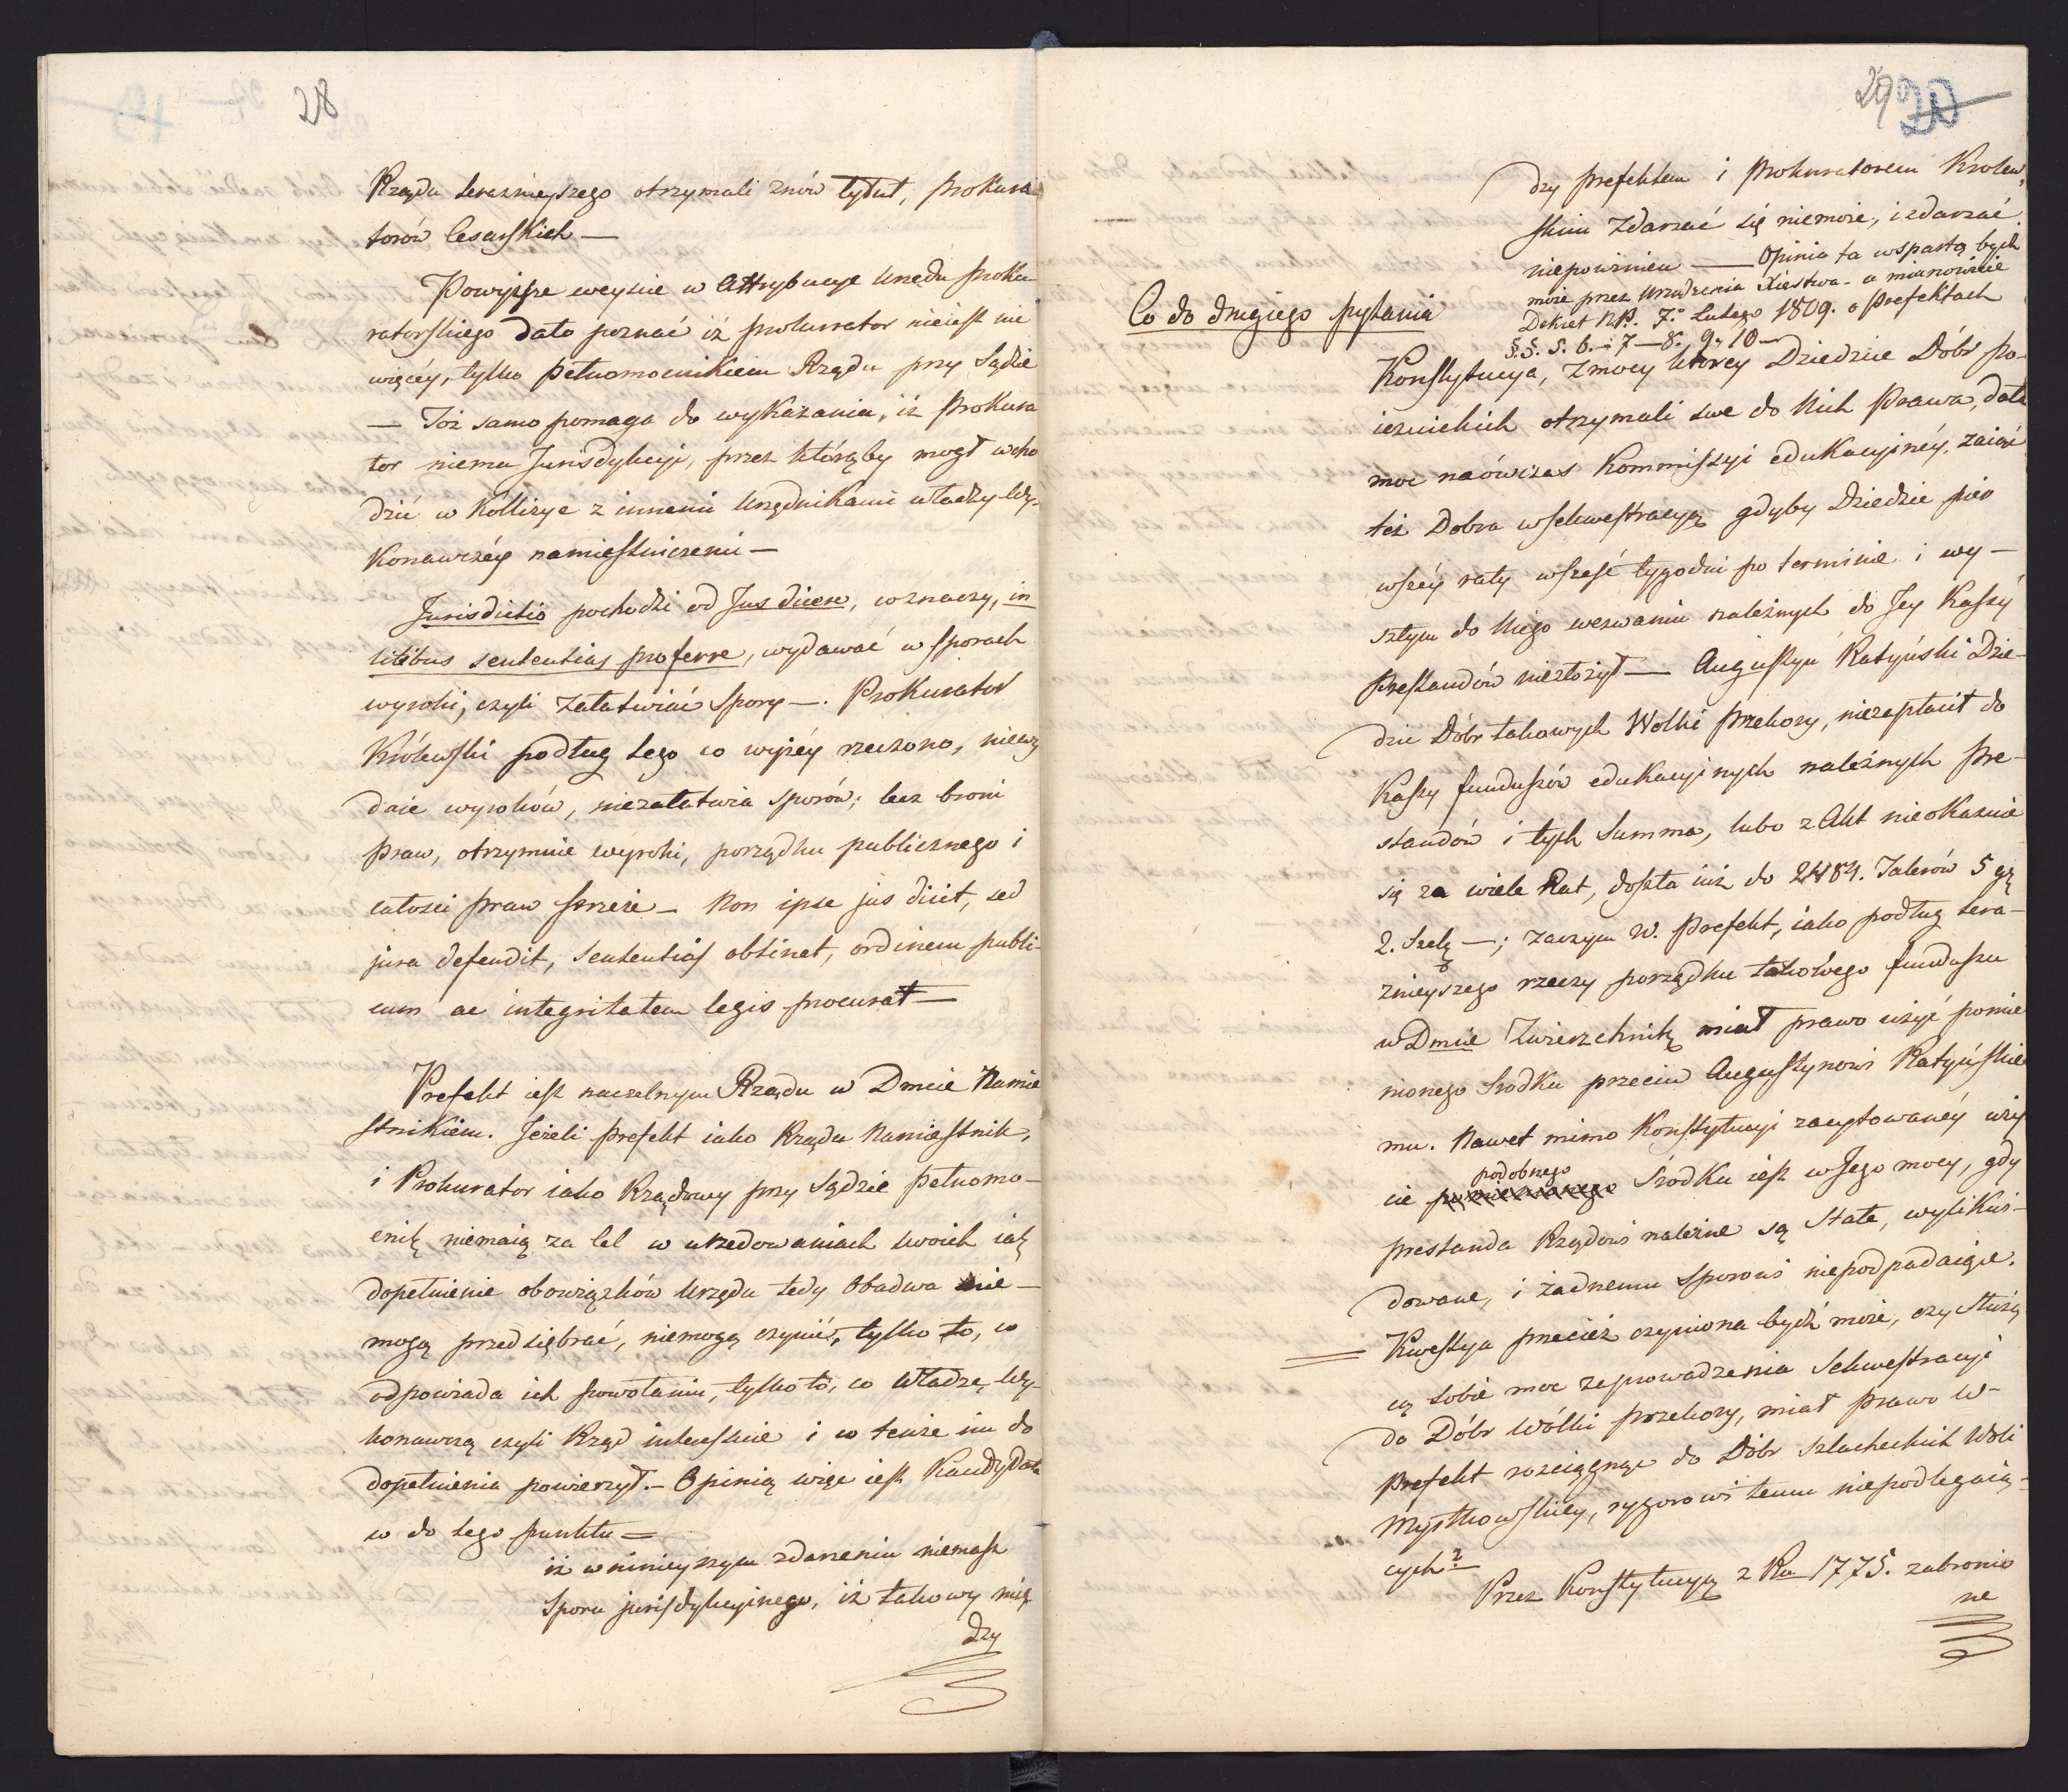 28
Rządu teraznieyszego otrzymali znów tytuł, Prokura
torów Cesarskich —
Powyższe weyście w Attrybucye Urzędu Proku
ratorskiego dało poznać iż Prokurator nieiest nic
więcéy, tylko Pełnomocnikiem Rządu przy Sądzie
— Toż samo pomaga do wykazania, iż Prokura
tor niema Jurisdykcyi, przez którąby mogł wcho
dzić w Kollizye z innemi Urzędnikami władzy Wy-
konawczéy namiestniczemi —
Jurisdictio pochodzi od Jus dicere, co znaczy, in
litibus sententias proferre, wydawać w sporach
wyroki, czyli załatwiać Spory —. Prokurator
Królewski podług tego co wyżéy rzeczono, niewy
daie wyroków, niezałatwia sporów; lecz broni
Praw, otrzymuie wyroki, porządku publicznego i
całości praw strzeże — Non ipse jus dicit, sed
jura defendit, Sententias obtinet, ordinem publi-
cum ac integritatem legis procurat —
Prefekt iest naczelnym Rządu w Dmcie Namie
stnikiem. Jeżeli Prefekt iako Rządu Namiestnik,
i Prokurator iako Rządowy przy Sądzie Pełnomo-
cnik niemaią za Cel w urzędowaniach swoich iak
dopełnienie obowiązków Urzędu tedy Obadwa nie-
mogą przedsiębrać, niemogą czynić, tylko to, co
odpowiada ich powołaniu, tylko to, co Władzę Wy-
konawczą czyli Rząd interessuie i co tenże im do
dopełnienia powierzył. — Opinią więc iest Kandydata
co do tego punktu =
iż w ninieyszym zdarzeniu niemasz
Sporu jurisdykcyinego, iż takowy mię
dzy
29 30
dzy Prefektem i Prokuratorem Krolew
skim Zdarzać się niemoże, i zdarzać
niepowinien — Opinia ta wspartą bydź
może przez Urządzenia Xięstwa - a mianowicie
Dekret NP. 7o Lutego 1809. o Prefektach
§.§. 5. 6. — 7 — 8. 9. 10 —
Co do drugiego pytania
Konstytucya, z mocy ktorey Dziedzice Dóbr po-
iezuickich otrzymali swe do Nich Prawa, dała
moc naówczas Kommissyi edukacyinéy, zaiąć
też Dobra w Sekwestracyą gdyby Dziedzic pier
wszéy raty w sześć tygodni po terminie i wy —
szłym do Niego wezwaniu należnych do Jey Kassy
Prestandów niezłożył — Augustyn Ratyński Dzie-
dzic Dóbr takowych Wolki Przekory, niezapłacił do
Kassy funduszów edukacyinych należnych Pre-
standów i tych Summa, lubo z Akt nieokazuie
się za wiele Rat, doszła iuż do 2484. Talerów 5 gr
2. Szelę —; zaczym W. Prefekt, iako podług tera-
znieyszego rzeczy porządku takowego funduszu
w Dmcie Zwierzchnik miał prawo użyć pomie
nionego Srodku przeciw Augustynowi Ratyńskie
mu. Nawet mimo Konstytucyi zacytowanéy uży
podobnego
cie pomienionego Srodku iest w Jego mocy, gdy
prestanda Rządowi należne są Stałe, wylikwi-
dowane, i żadnemu Sporowi niepodpadaiące.
Kwestya przecież czyniona bydź może, czy służą
cą Sobie moc zaprowadzenia Sekwestracyi
do Dóbr Wólki Przekory, miał Prawo W-
Prefekt rozciągnąć do Dóbr szlacheckich Woli
Mystkowskiey, rygorowi temu niepodlegaią-
cych?
Przez Konstytucyą z Ru 1775. zabronio
ne